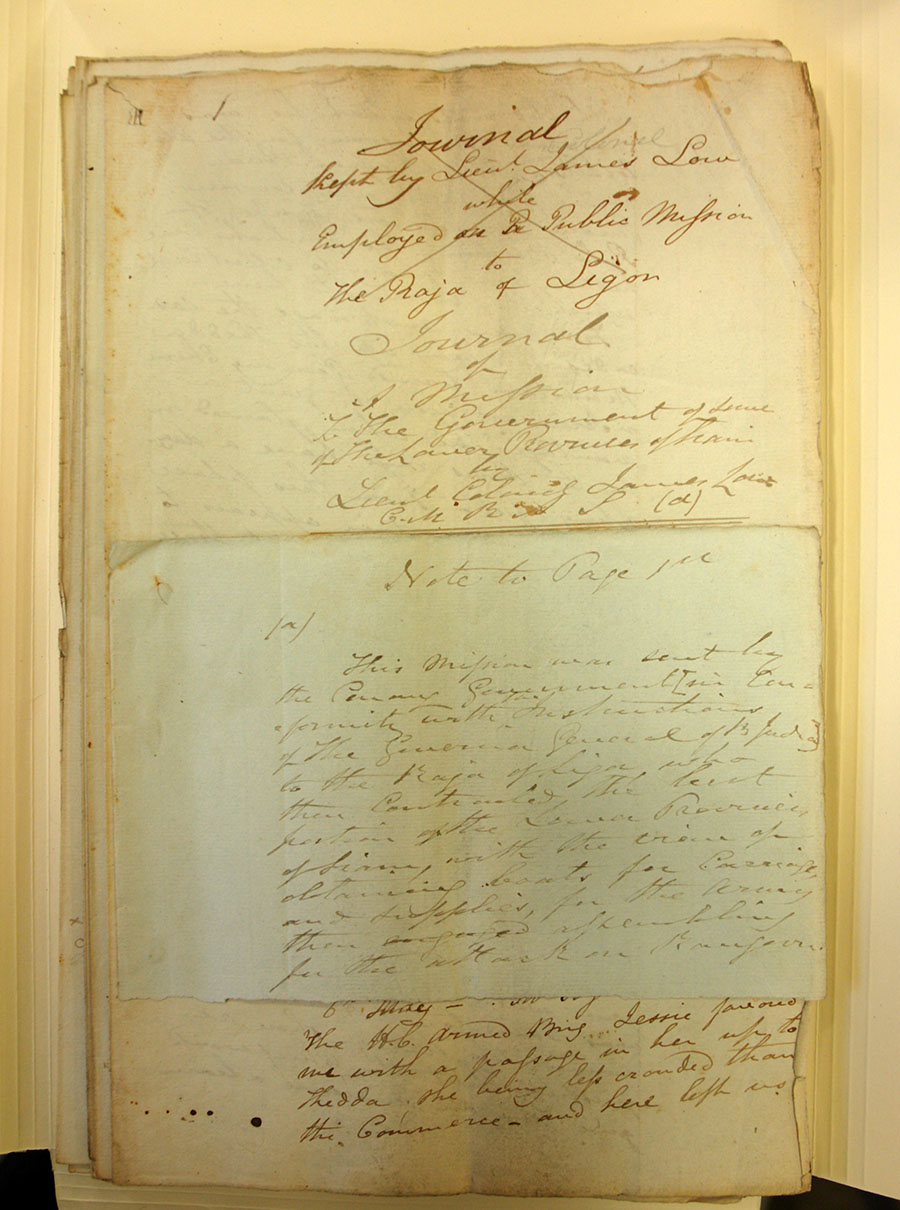 1
Journal
kept by Lieut. James Low
while
Employed on a Public Mission
to
the Raja of Ligor
Journal
of
A Mission
to The Government of some
of The Lower Provinces of Siam
by
Lieut Colonel James Low
C. M. R A S (a)
Note to Page 1st
(a)
This Mission was sent by
the Penang Government [in Con-
formity with Instructions
of The Governor General of B India]
to the Raja of Ligor who
then Controuled the best
portion of the Lower Provinces
of Siam, with the view of
obtaining boats for Carriage,
and supplies, for the Army
then engaged assembling
for the attack on Rangoon.
6th May –
The H.C. armed Brig Jessie favored
me with a passage in her up to
Khedda she being less crouded than
the Commerce – and here left us